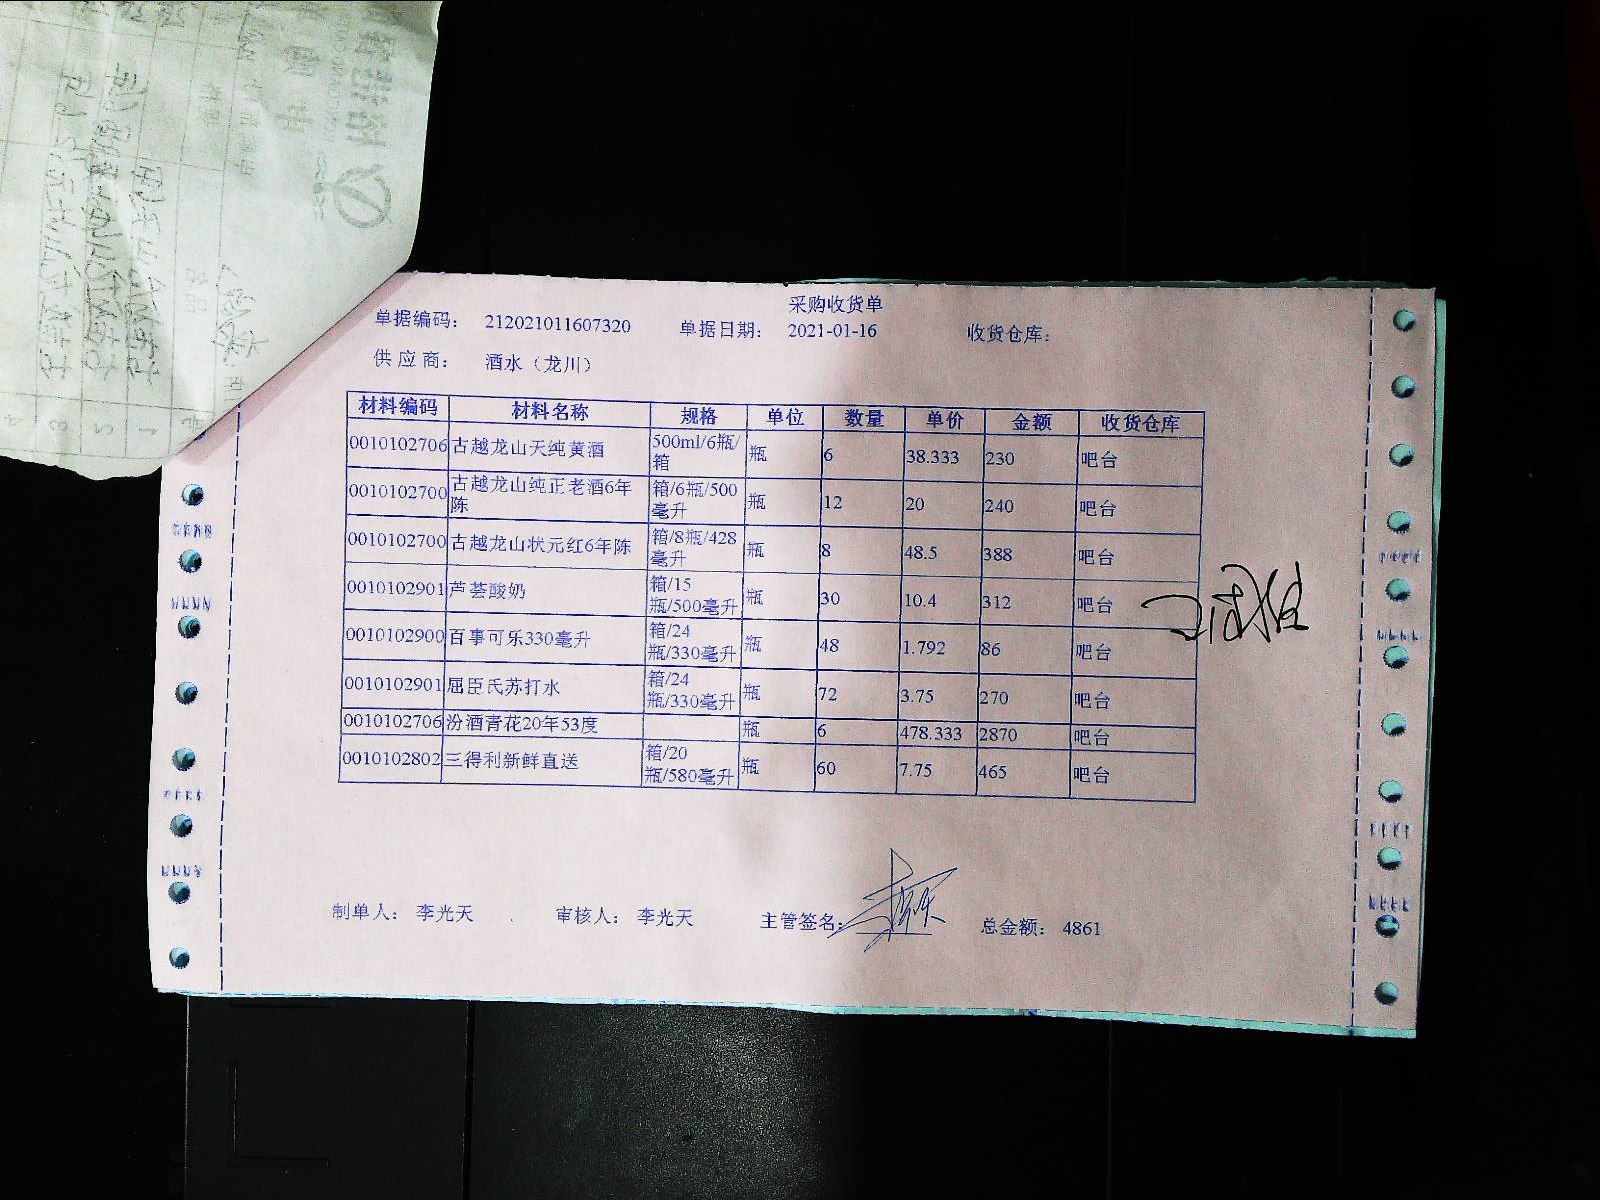 采购收货单
单据编码： 212021011607320 单据日期： 2021-01-16 收货仓库：
供应商： 酒水（龙川）
材料编码 材料名称 规格 单位 数量 单价 金额 收货仓库
0010102706 古越龙山天纯黄酒 500ml/6瓶/箱 瓶 6 38.333 230 吧台
0010102700 古越龙山纯正老酒6年陈 箱/6瓶/500毫升 瓶 12 20 240 吧台
0010102700 古越龙山状元红6年陈 箱/8瓶/428毫升 瓶 8 48.5 388 吧台
0010102901 芦荟酸奶 箱/15瓶/500毫升 瓶 30 10.4 312 吧台
0010102900 百事可乐330毫升 箱/24瓶/330毫升 瓶 48 1.792 86 吧台
0010102901 屈臣氏苏打水 箱/24瓶/330毫升 瓶 72 3.75 270 吧台
0010102706 汾酒青花20年53度 瓶 6 478.333 2870 吧台
0010102802 三得利新鲜直送 箱/20瓶/580毫升 瓶 60 7.75 465 吧台
制单人： 李光天 审核人： 李光天 主管签名： 总金额： 4861